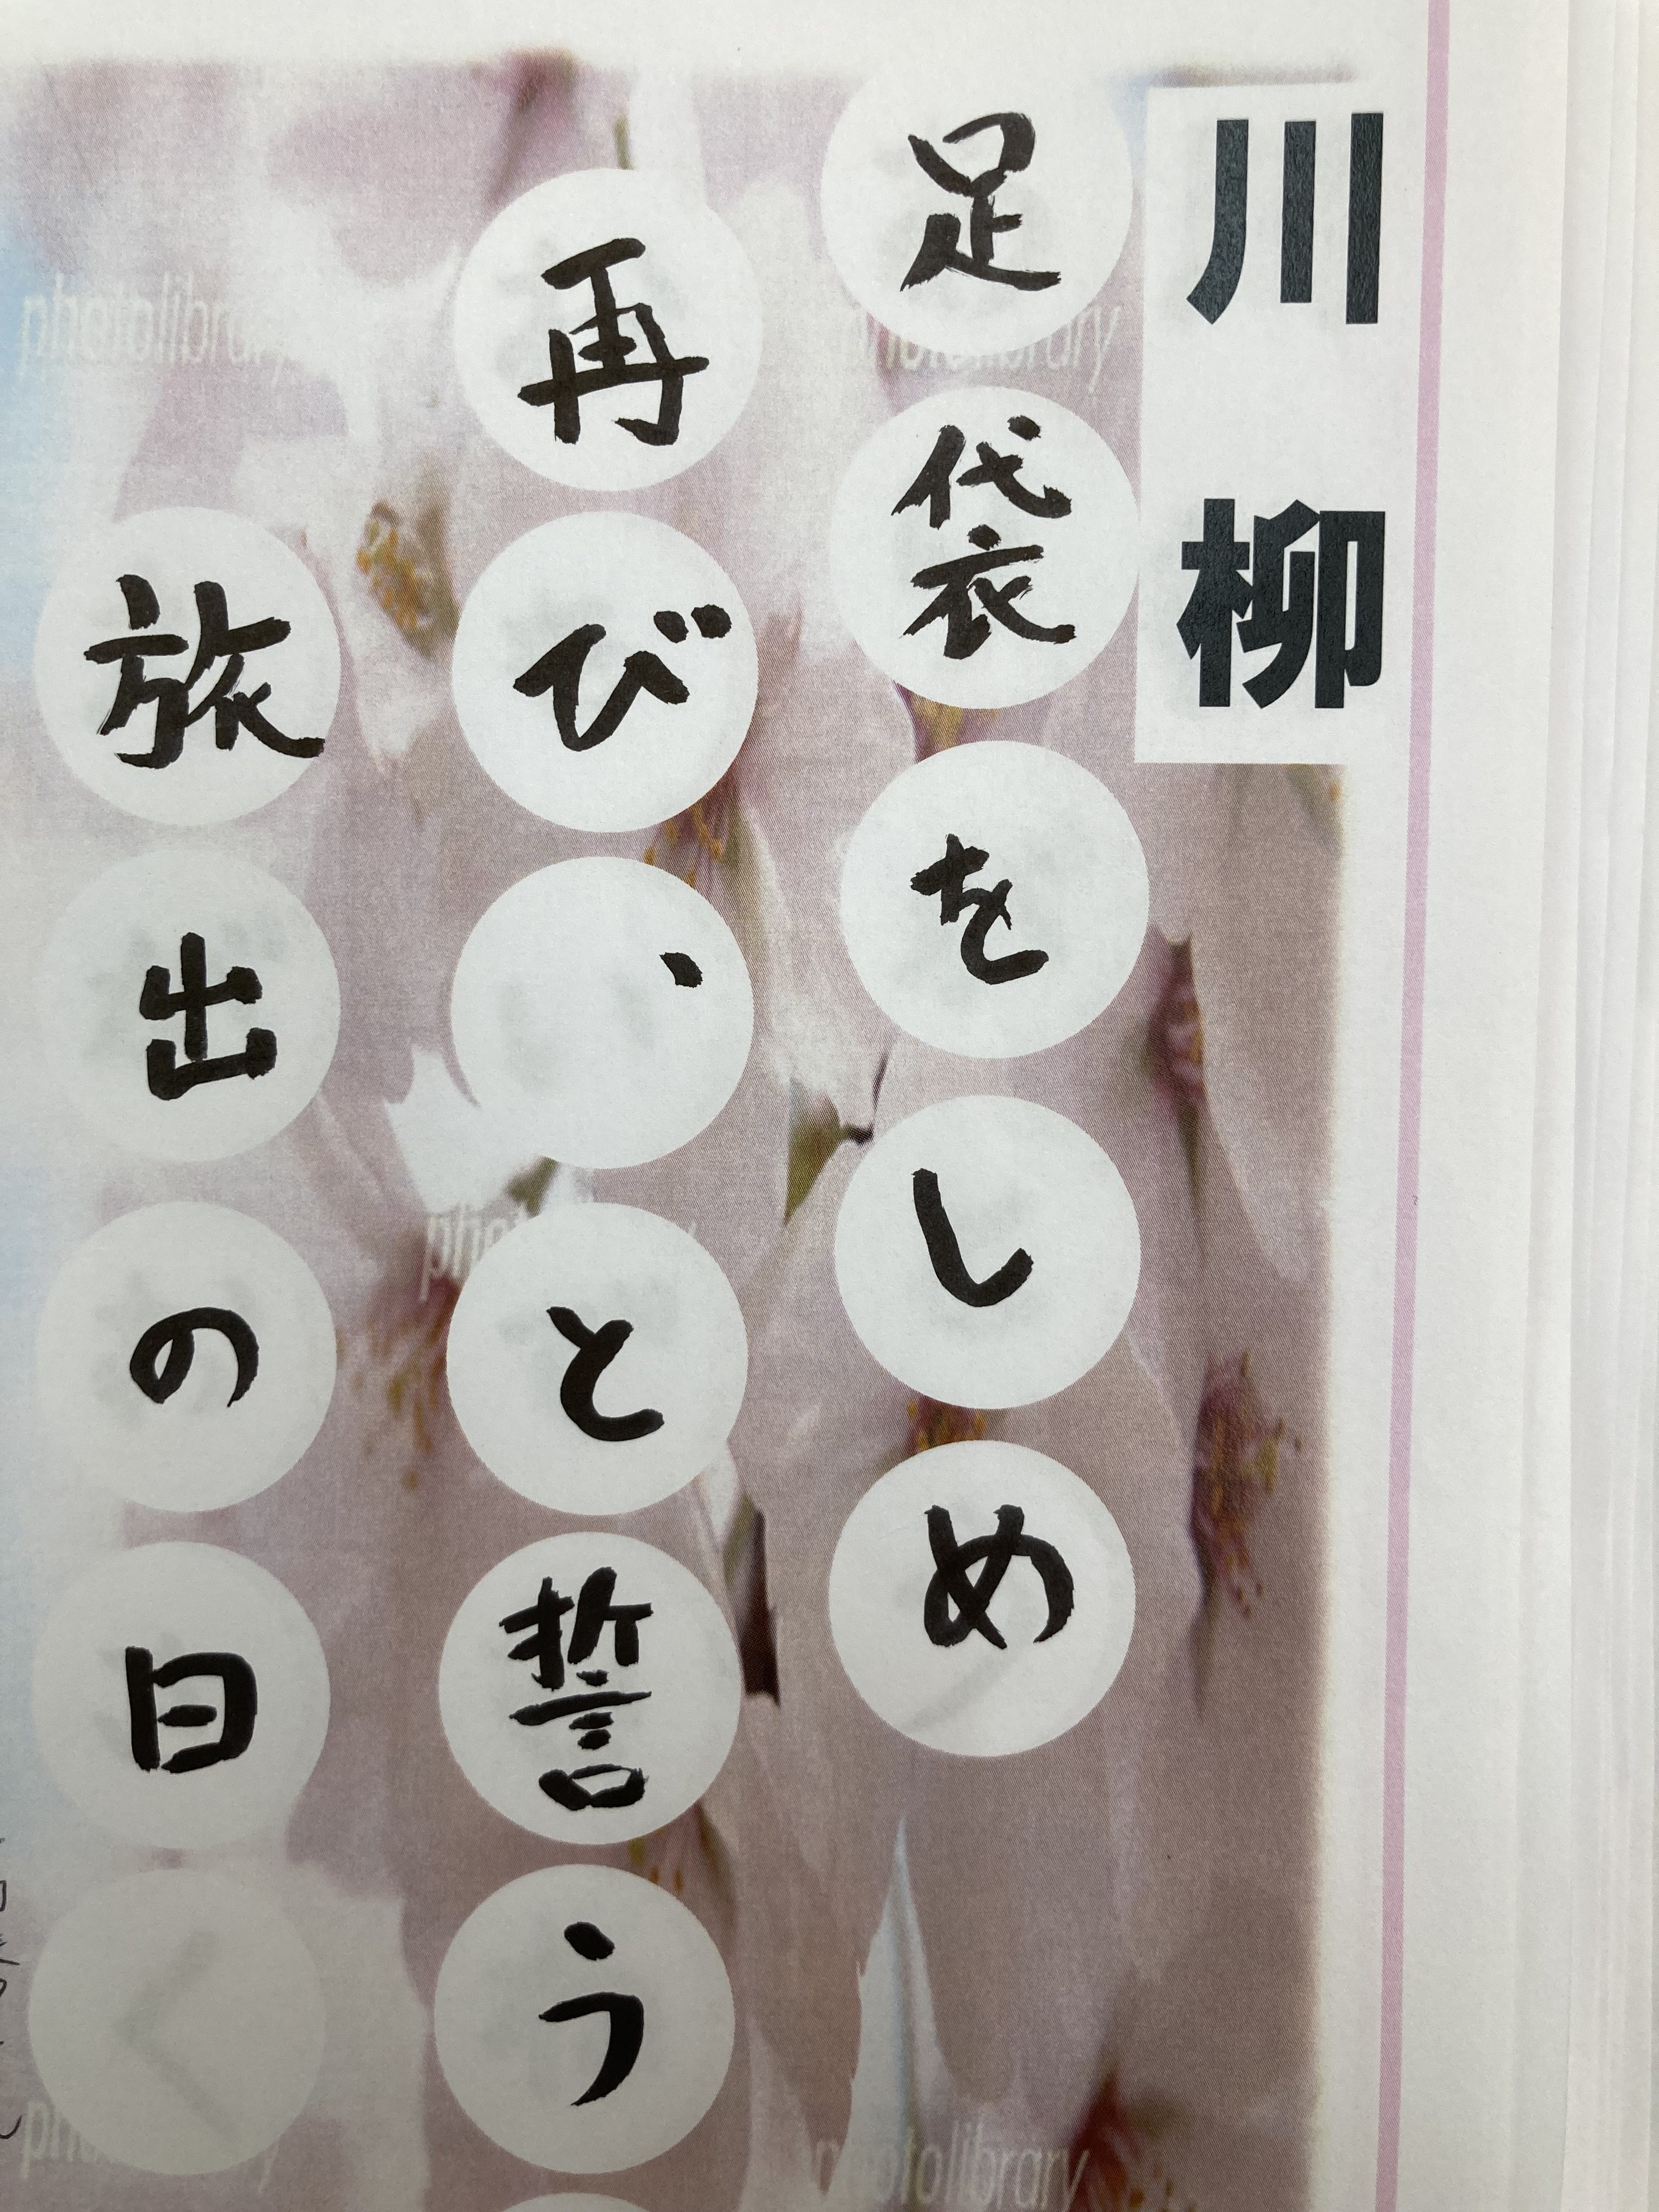 川柳
足袋をしめ
再び、と誓う
旅出の日
photolibrary
photolibrary
photolibrary